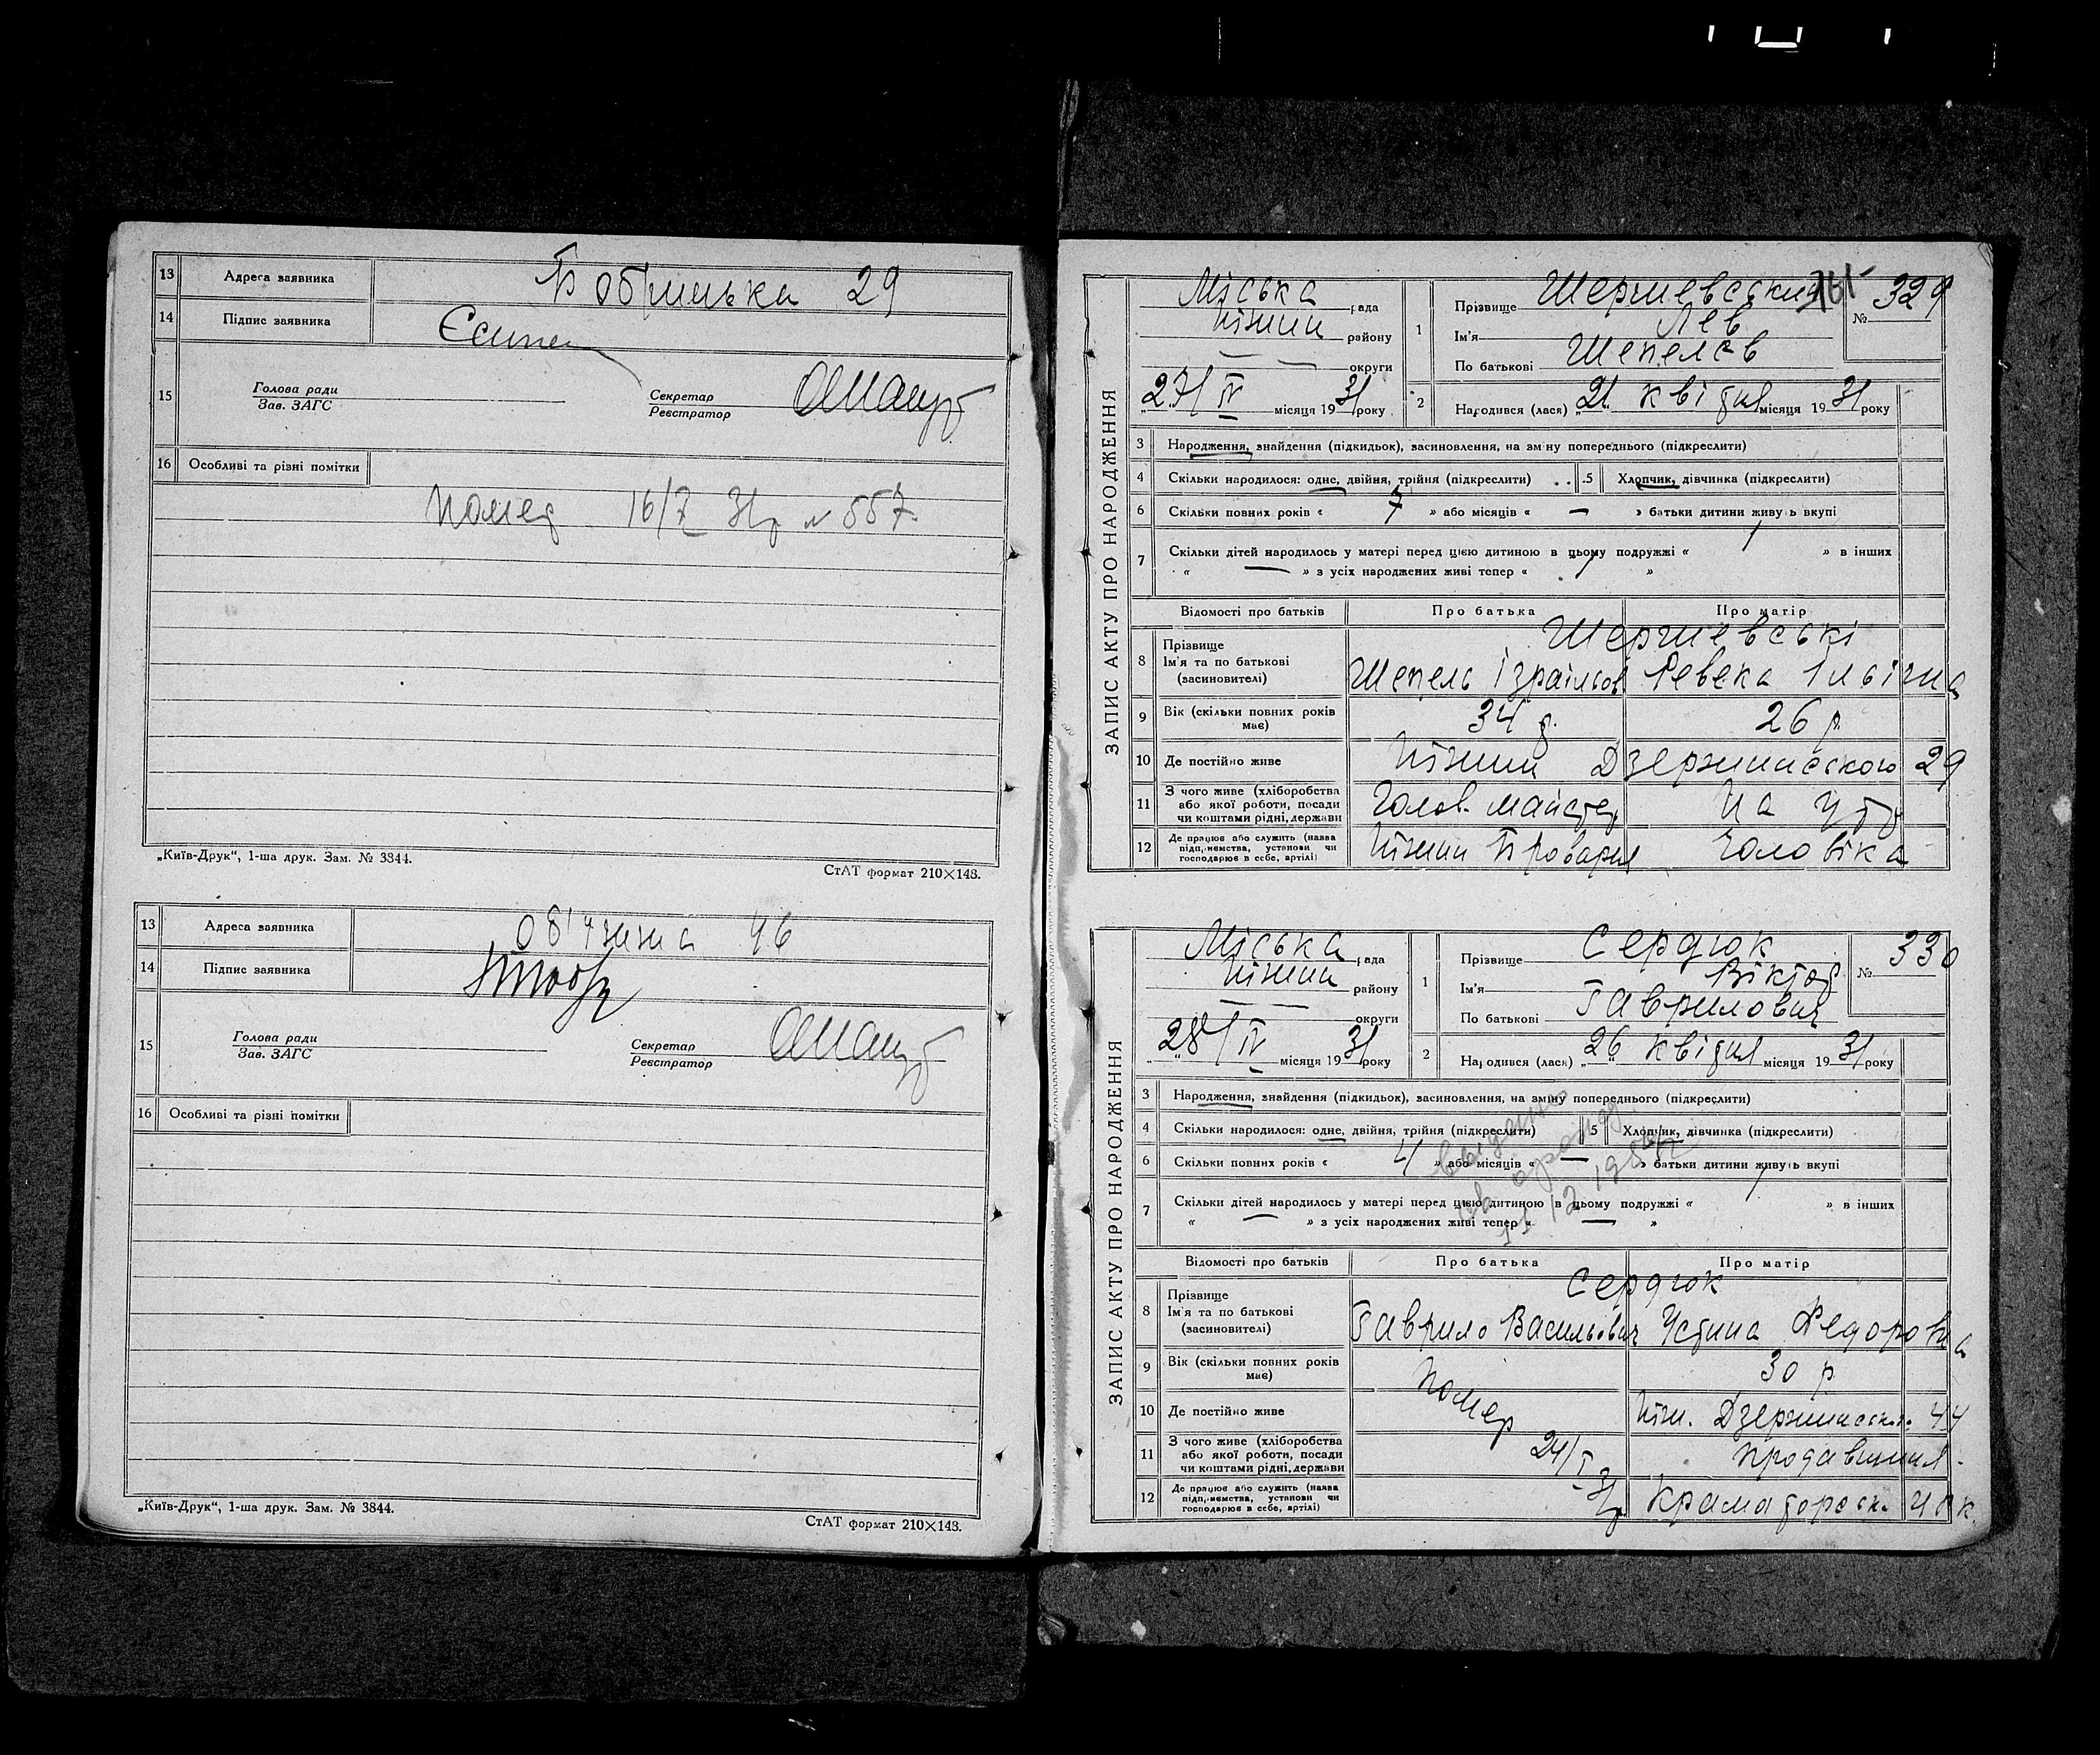 13 Адреса заявника Бобрицька 29
14 Підпис заявника
15 Голова ради
Зав. ЗАГС
Секретар
Реєстратор
16 Особливі та різні помітки
16/7 31р № 557
„Київ-Друк“, 1-ша друк. Зам. № 3844.
СтАТ формат 210×148.
13 Адреса заявника Об'їзжа 46
14 Підпис заявника
15 Голова ради
Зав. ЗАГС
Секретар
Реєстратор
16 Особливі та різні помітки
„Київ-Друк“, 1-ша друк. Зам. № 3844.
СтАТ формат 210×148.
ЗАПИС АКТУ ПРО НАРОДЖЕННЯ
Міська рада
Ніжин району
округи
„27/IV місяця 1931 року
1 Прізвище
Ім'я Лев
По батькові Шепелєв
№ 329
2 Народився (лася) „21“ квітня місяця 1931 року
3 Народження, знайдення (підкидьок), засиновлення, на зміну попереднього (підкреслити)
4 Скільки народилося: одне, двійня, трійня (підкреслити) . . 5 Хлопчик, дівчинка (підкреслити)
6 Скільки повних років « 7 » або місяців « — » батьки дитини живуть вкупі
7 Скільки дітей народилось у матері перед цією дитиною в цьому подружжі « 1 » в інших
« — » з усіх народжених живі тепер « 1 »
Відомості про батьків Про батька Про матір
8 Прізвище
Ім'я та по батькові Шепель Ізраільов Ревека Ільїчна
(засиновителі)
9 Вік (скільки повних років має) 34 р. 26 р.
10 Де постійно живе Ніжин Дзержинського 29
11 З чого живе (хліборобства або якої роботи, посади чи коштами рідні, держави Голов. майстер На утр
12 Де працює або служить (назва підприємства, установи чи господарює в себе, артілі) Ніжин Броварня чоловіка
ЗАПИС АКТУ ПРО НАРОДЖЕННЯ
Міська рада
Ніжин району
округи
„28/IV місяця 1931 року
1 Прізвище Сердюк
Ім'я Віктор
По батькові Гаврилович
№ 330
2 Народився (лася) „26“ квітня місяця 1931 року
3 Народження, знайдення (підкидьок), засиновлення, на зміну попереднього (підкреслити)
4 Скільки народилося: одне, двійня, трійня (підкреслити) 5 Хлопчик, дівчинка (підкреслити)
6 Скільки повних років « 4 » або місяців « — » батьки дитини живуть вкупі
7 Скільки дітей народилось у матері перед цією дитиною в цьому подружжі « 1 » в інших
« — » з усіх народжених живі тепер « — »
Відомості про батьків Про батька Про матір
Сердюк
8 Прізвище
Ім'я та по батькові Гаврило Васильович Устина Федоровна
(засиновителі)
9 Вік (скільки повних років має) 30 р.
Помер
10 Де постійно живе Ніж. Дзержинськ. 44
24/I 31р
11 З чого живе (хліборобства або якої роботи, посади чи коштами рідні, держави продавщиця
12 Де працює або служить (назва підприємства, установи чи господарює в себе, артілі)